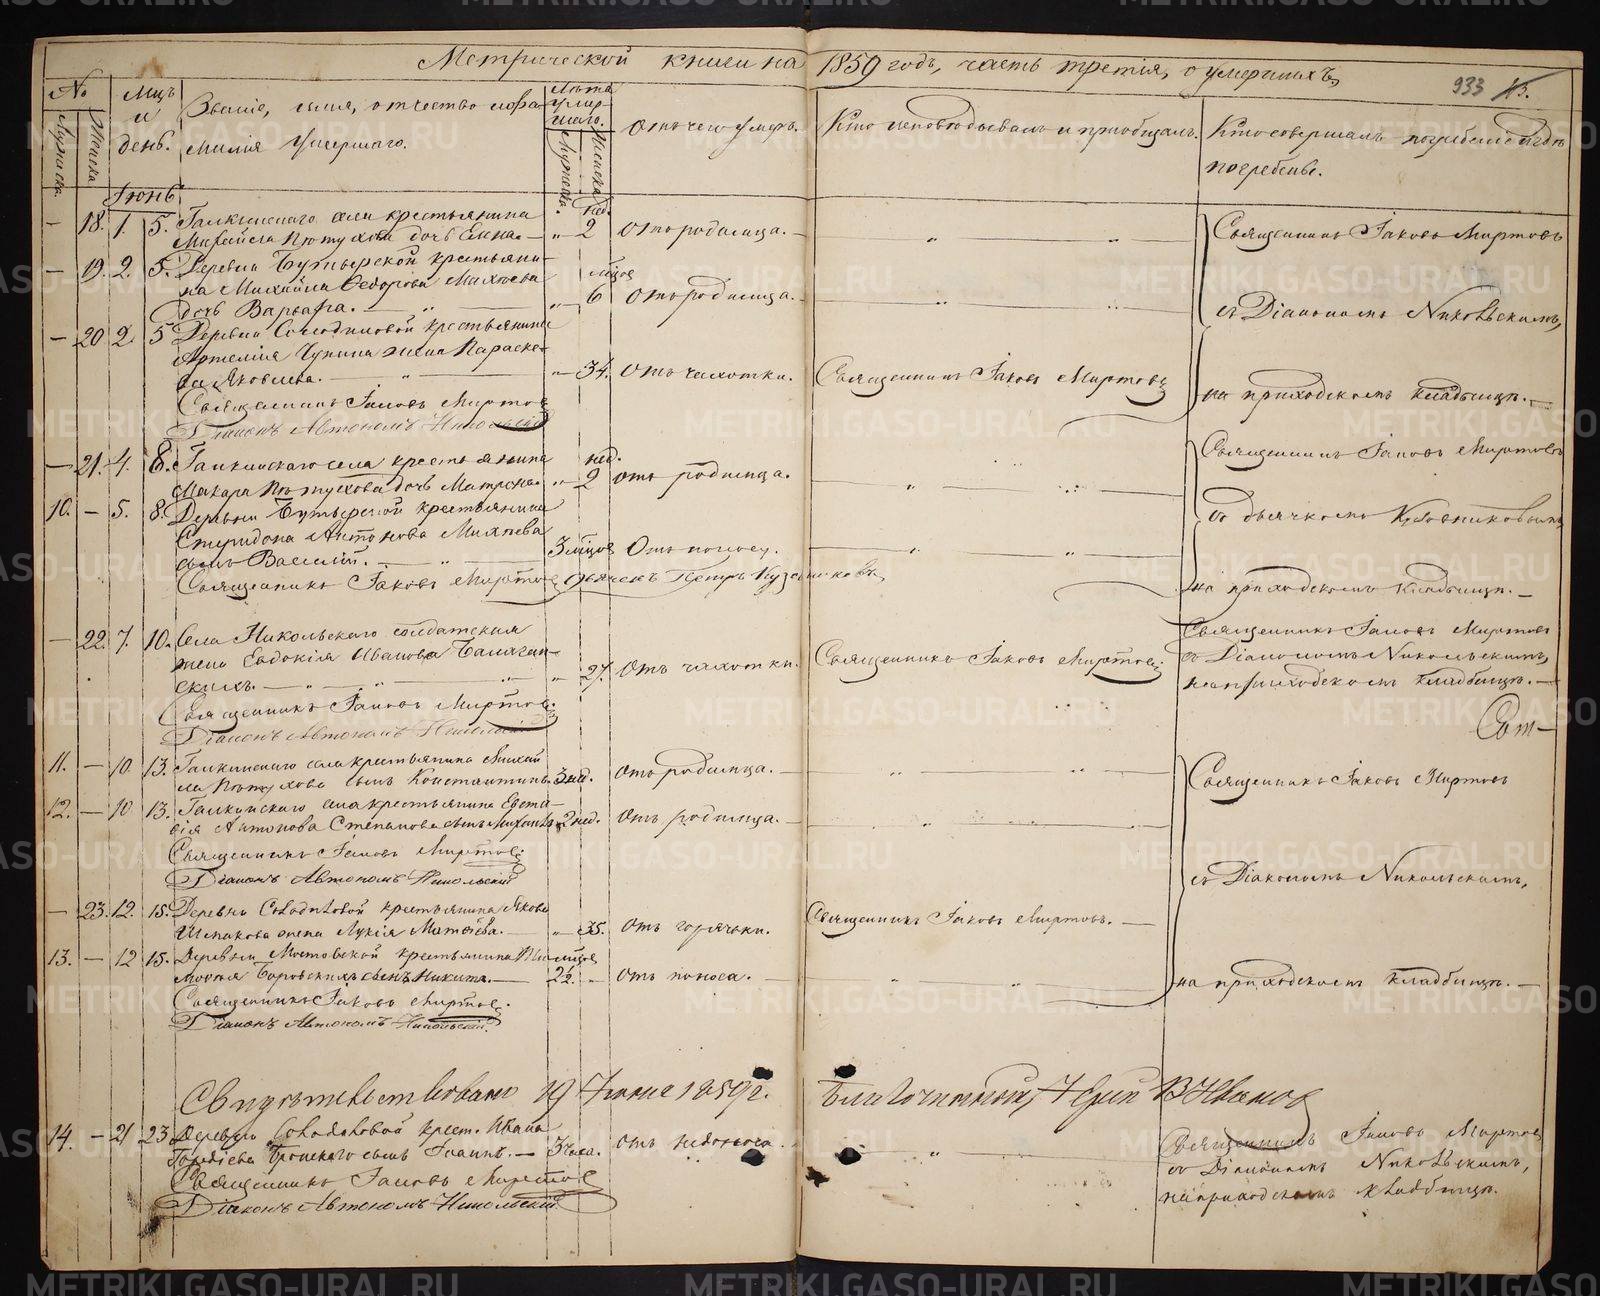 Метрической книги на 1859 годъ, часть третія, о умершихъ,
933
№
Мужска.
Женска
Мцъ и день.
Званіе, имя, отчество и фамилія умершаго.
Лѣта умершаго.
Мужеска.
Женска
Отъ чего умеръ.
Кто исповѣдывалъ и пріобщалъ.
Кто совершалъ погребеніе и гдѣ
погребены.
Іюнь
— 18. 1. 5. Галкинскаго села крестьянина нед.
Михаила Пѣтухова дочь Анна. — „ 2 Отъ родимца. — „ „ Священникъ Іаковъ Миртовъ
— 19. 2. 5. Деревни Бутырской крестьяни-
на Михаила Ѳедорова Михѣева мцов
дочь Варвара. — „ — „ 6 Отъ родимца. — „ „ съ Діакономъ Никольскимъ,
— 20 2. 5 Деревни Солодиловой крестьянина
Артемія Чупина жена Параске-
ва Яковлева. — „ — „ 34. Отъ чахотки. Священникъ Іаковъ Миртовъ на приходскомъ кладбищѣ. —
Священникъ Іаковъ Миртовъ
Діаконъ Автономъ Никольскій
— 21. 4. 8. Галкинскаго села крестьянина нед. Священникъ Іаковъ Миртовъ
Макара Пѣтухова дочь Матрена. „ 2 отъ родимца. — „ „
10. — 5. 8. Деревни Бутырской крестьянина съ дьячкомъ
Спиридона Антонова Михѣева
сынъ Василій. — „ — 3 мцов Отъ поносу. — „ „
Священникъ Іаковъ Миртовъ Дьячекъ Петръ на приходскомъ кладбищѣ. —
— 22. 7. 10. Села Никольскаго солдатская Священникъ Іаковъ Миртовъ
жена Евдокія Иванова съ Діакономъ Никольскимъ,
скихъ. — „ — „ — „ 27. Отъ чахотки. Священникъ Іаковъ Миртовъ. на приходскомъ кладбищѣ. —
Священникъ Іаковъ Миртовъ.
Діаконъ Автономъ Никольскій
11. — 10. 13. Галкинскаго села крестьянина Михаи-
ла Пѣтухова сынъ Константинъ. 3 нед. Отъ родимца. — „ „ Священникъ Іаковъ Миртовъ
12. — 10 13. Галкинскаго села крестьянина Евста-
фія Антонова Степанова сынъ 2 нед. Отъ родимца. — „ „
Священникъ Іаковъ Миртовъ
Діаконъ Автономъ Никольскій съ Діакономъ Никольскимъ,
— 23. 12. 15. Деревни Солодиловой крестьянина Якова
жена Лукія Матвѣева. — „ — 35. Отъ горячки. Священникъ Іаковъ Миртовъ. —
13. — 12 15. Деревни Мостовской крестьянина мцов
Боровскихъ сынъ Никита. — 2½. „ Отъ поноса. — „ „ на приходскомъ кладбищѣ. —
Священникъ Іаковъ Миртовъ.
Діаконъ Автономъ Никольскій.
Свидѣтельствовалъ 19 Іюня 1859 г. Благочинный, Іерей В Ивановъ
14. — 21 23 Деревни Солодиловой крест. Ивана Священникъ Іаковъ Миртовъ
сынъ Іоаннъ. — 3 часа. Отъ „ съ Діакономъ Никольскимъ,
Священникъ Іаковъ Миртовъ на приходскомъ кладбищѣ.
Діаконъ Автономъ Никольскій
METRIKI.GASO-URAL.RU